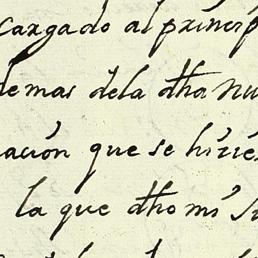 cargado al princip
demas dela dha nu
acion que se hizie
la que dho mi su